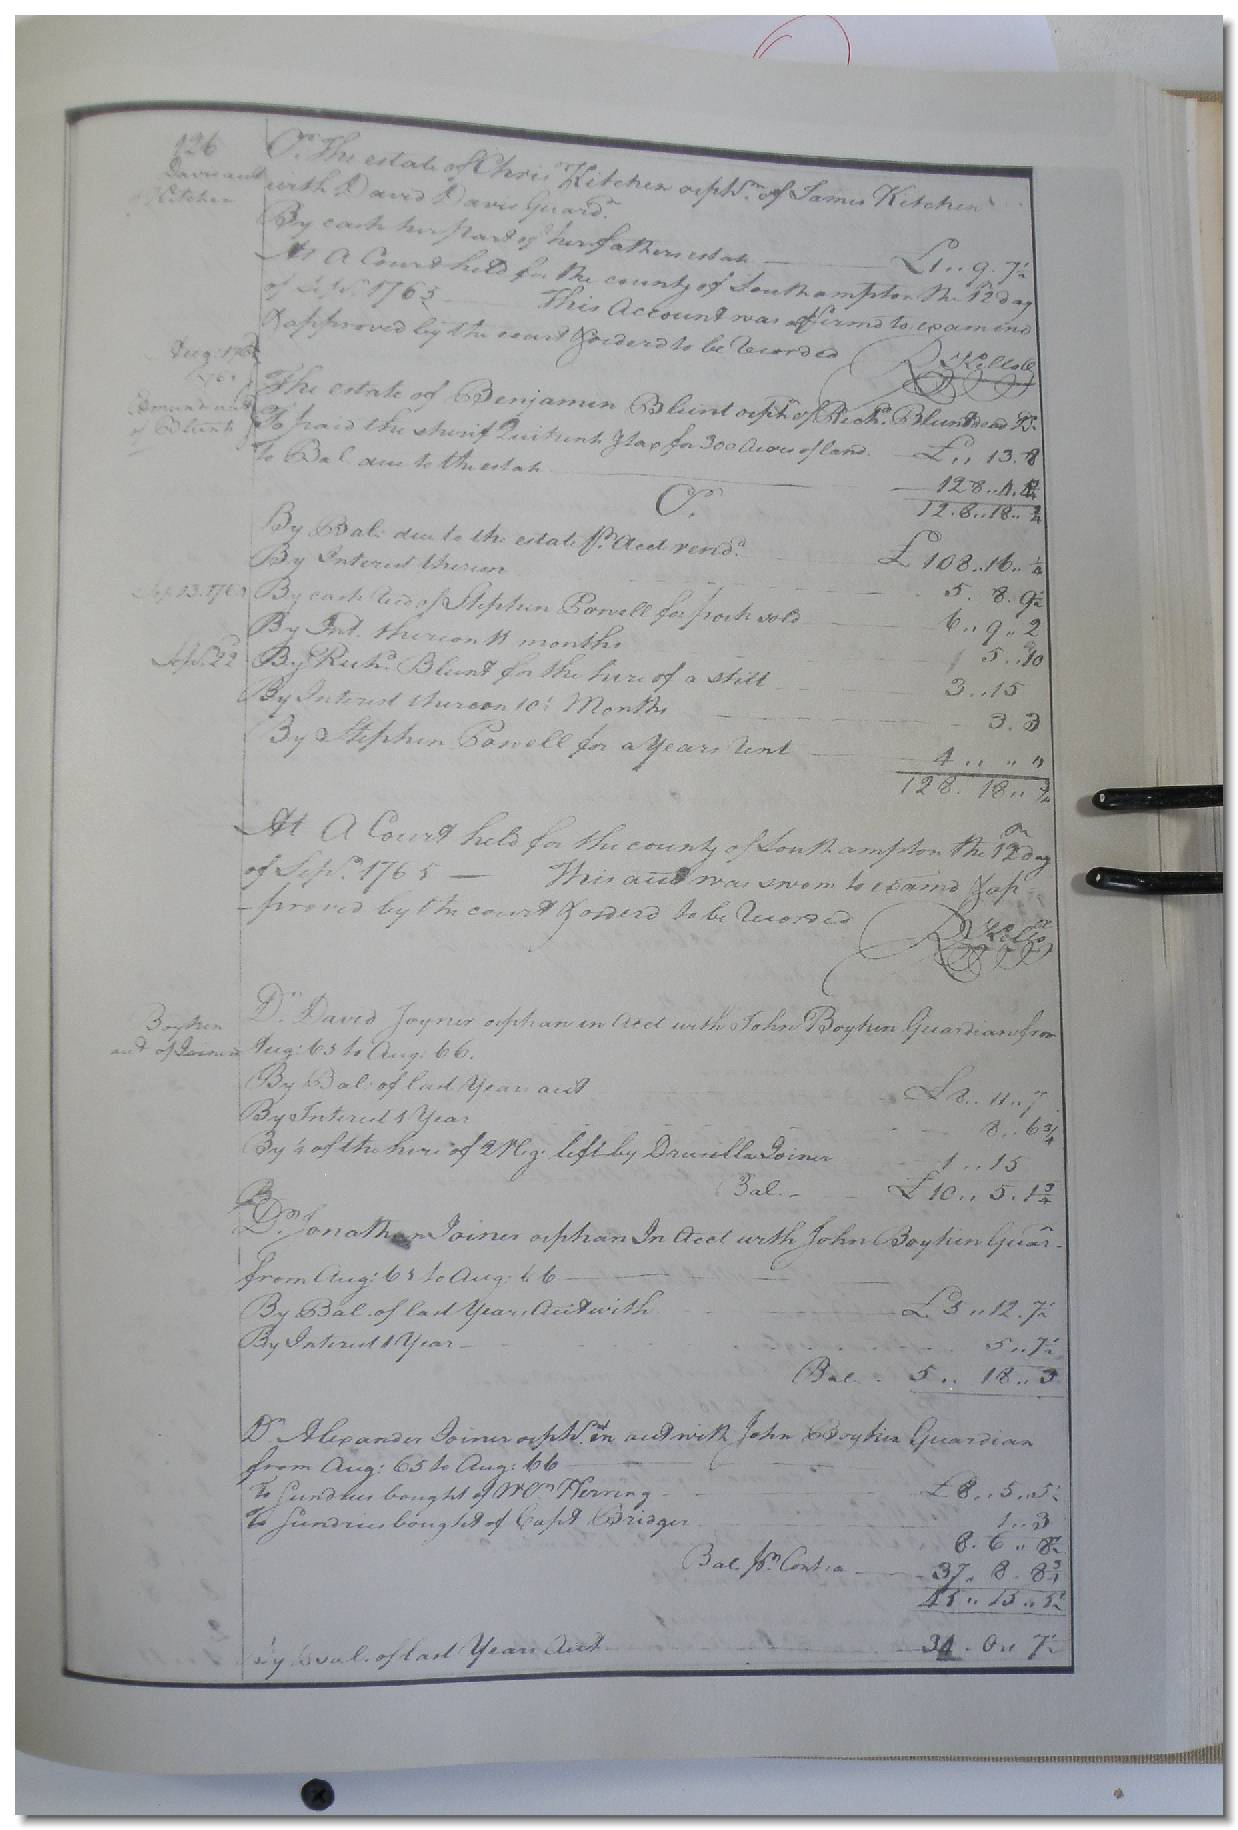 126
Davis acct
of Kitchen
Cr. The estate of Chris Kitchen orphn. of James Kitchen
with David Davis Guard.
By cash her part of her fathers estate £1..9..7½
At A Court held for the county of Southampton the 12 day
of Sepr. 1765 This Account was affirmd to examind
& approved by the court & orderd to be Recorded
Rd Kello
Aug: 176
acct
of Blunt
The estate of Benjamin Blunt orph of Richd. Blunt decd Dr.
To paid the sherif Quitrents & tax for 300 Acres of land £.. 13. 8
To Bal due to the estate 128..4.
Cr. 128..18..¾
By Bal: due to the estate pr. Acct rend. £108..16..¼
By Interest thereon 5. 8. 9½
Sep. 13. 176
By cash recd of Stephen Powell for pork sold 6..9..2
By Int. thereon 11 months 5..10
Sepr. 22
By Richd. Blunt for the hire of a still 3..15
By Interest thereon 10 Months 3. 3
By Stephen Powell for a Years Rent 4.. " "
128. 18..¾
At A Court held for the county of Southampton the 12 day
of Sepr. 1765 — This acct was sworn to examd & ap
-proved by the court & orderd to be Recorded
Rd Kello
Boykin
acct of Joiner
Dr. David Joyner orphan in Acct with John Boykin Guardian from
Aug: 65 to Aug: 66.
By Bal: of last Year acct £8..11..7
By Interest 1 Year 8..6¾
By ¼ of the hire of 2 Neg: left by Drusilla Joiner 1..15
Bal.. £10..5..1¾
Dr. Jonathan Joiner orphan In Acct with John Boykin Guar-
from Aug: 65 to Aug: 66
By Bal. of last Years Acct with £5..12..7½
By Interest 1 Year 5..7½
Bal. 5.. 18..3
Dr Alexander Joiner orphn. in acct with John Boykin Guardian
from Aug: 65 to Aug: 66
To Sundries bought of Wm Herring £8..5..5½
To Sundries bought of Capt Bridger 1..3
8. 6..8½
Bal. pr. Contra 37. 8. 8¾
45.. 15..5¼
By Bal. of last Years Acct 34. 0.. 7½